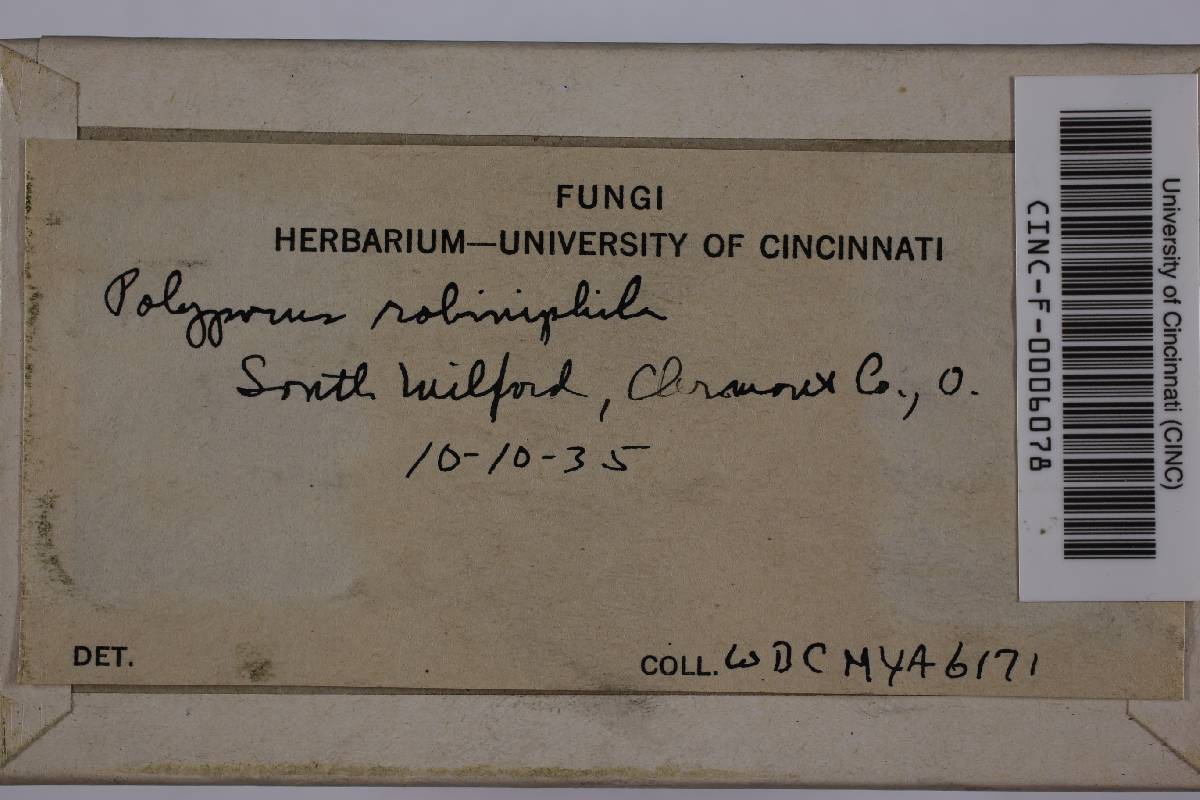 FUNGI
HERBARIUM—UNIVERSITY OF CINCINNATI
Polyporus robiniphila
South Milford, Clermont Co., O.
10-10-35
DET.
COLL. WBC MYA 6171
University of Cincinnati (CINC)
CINC-F-0006078